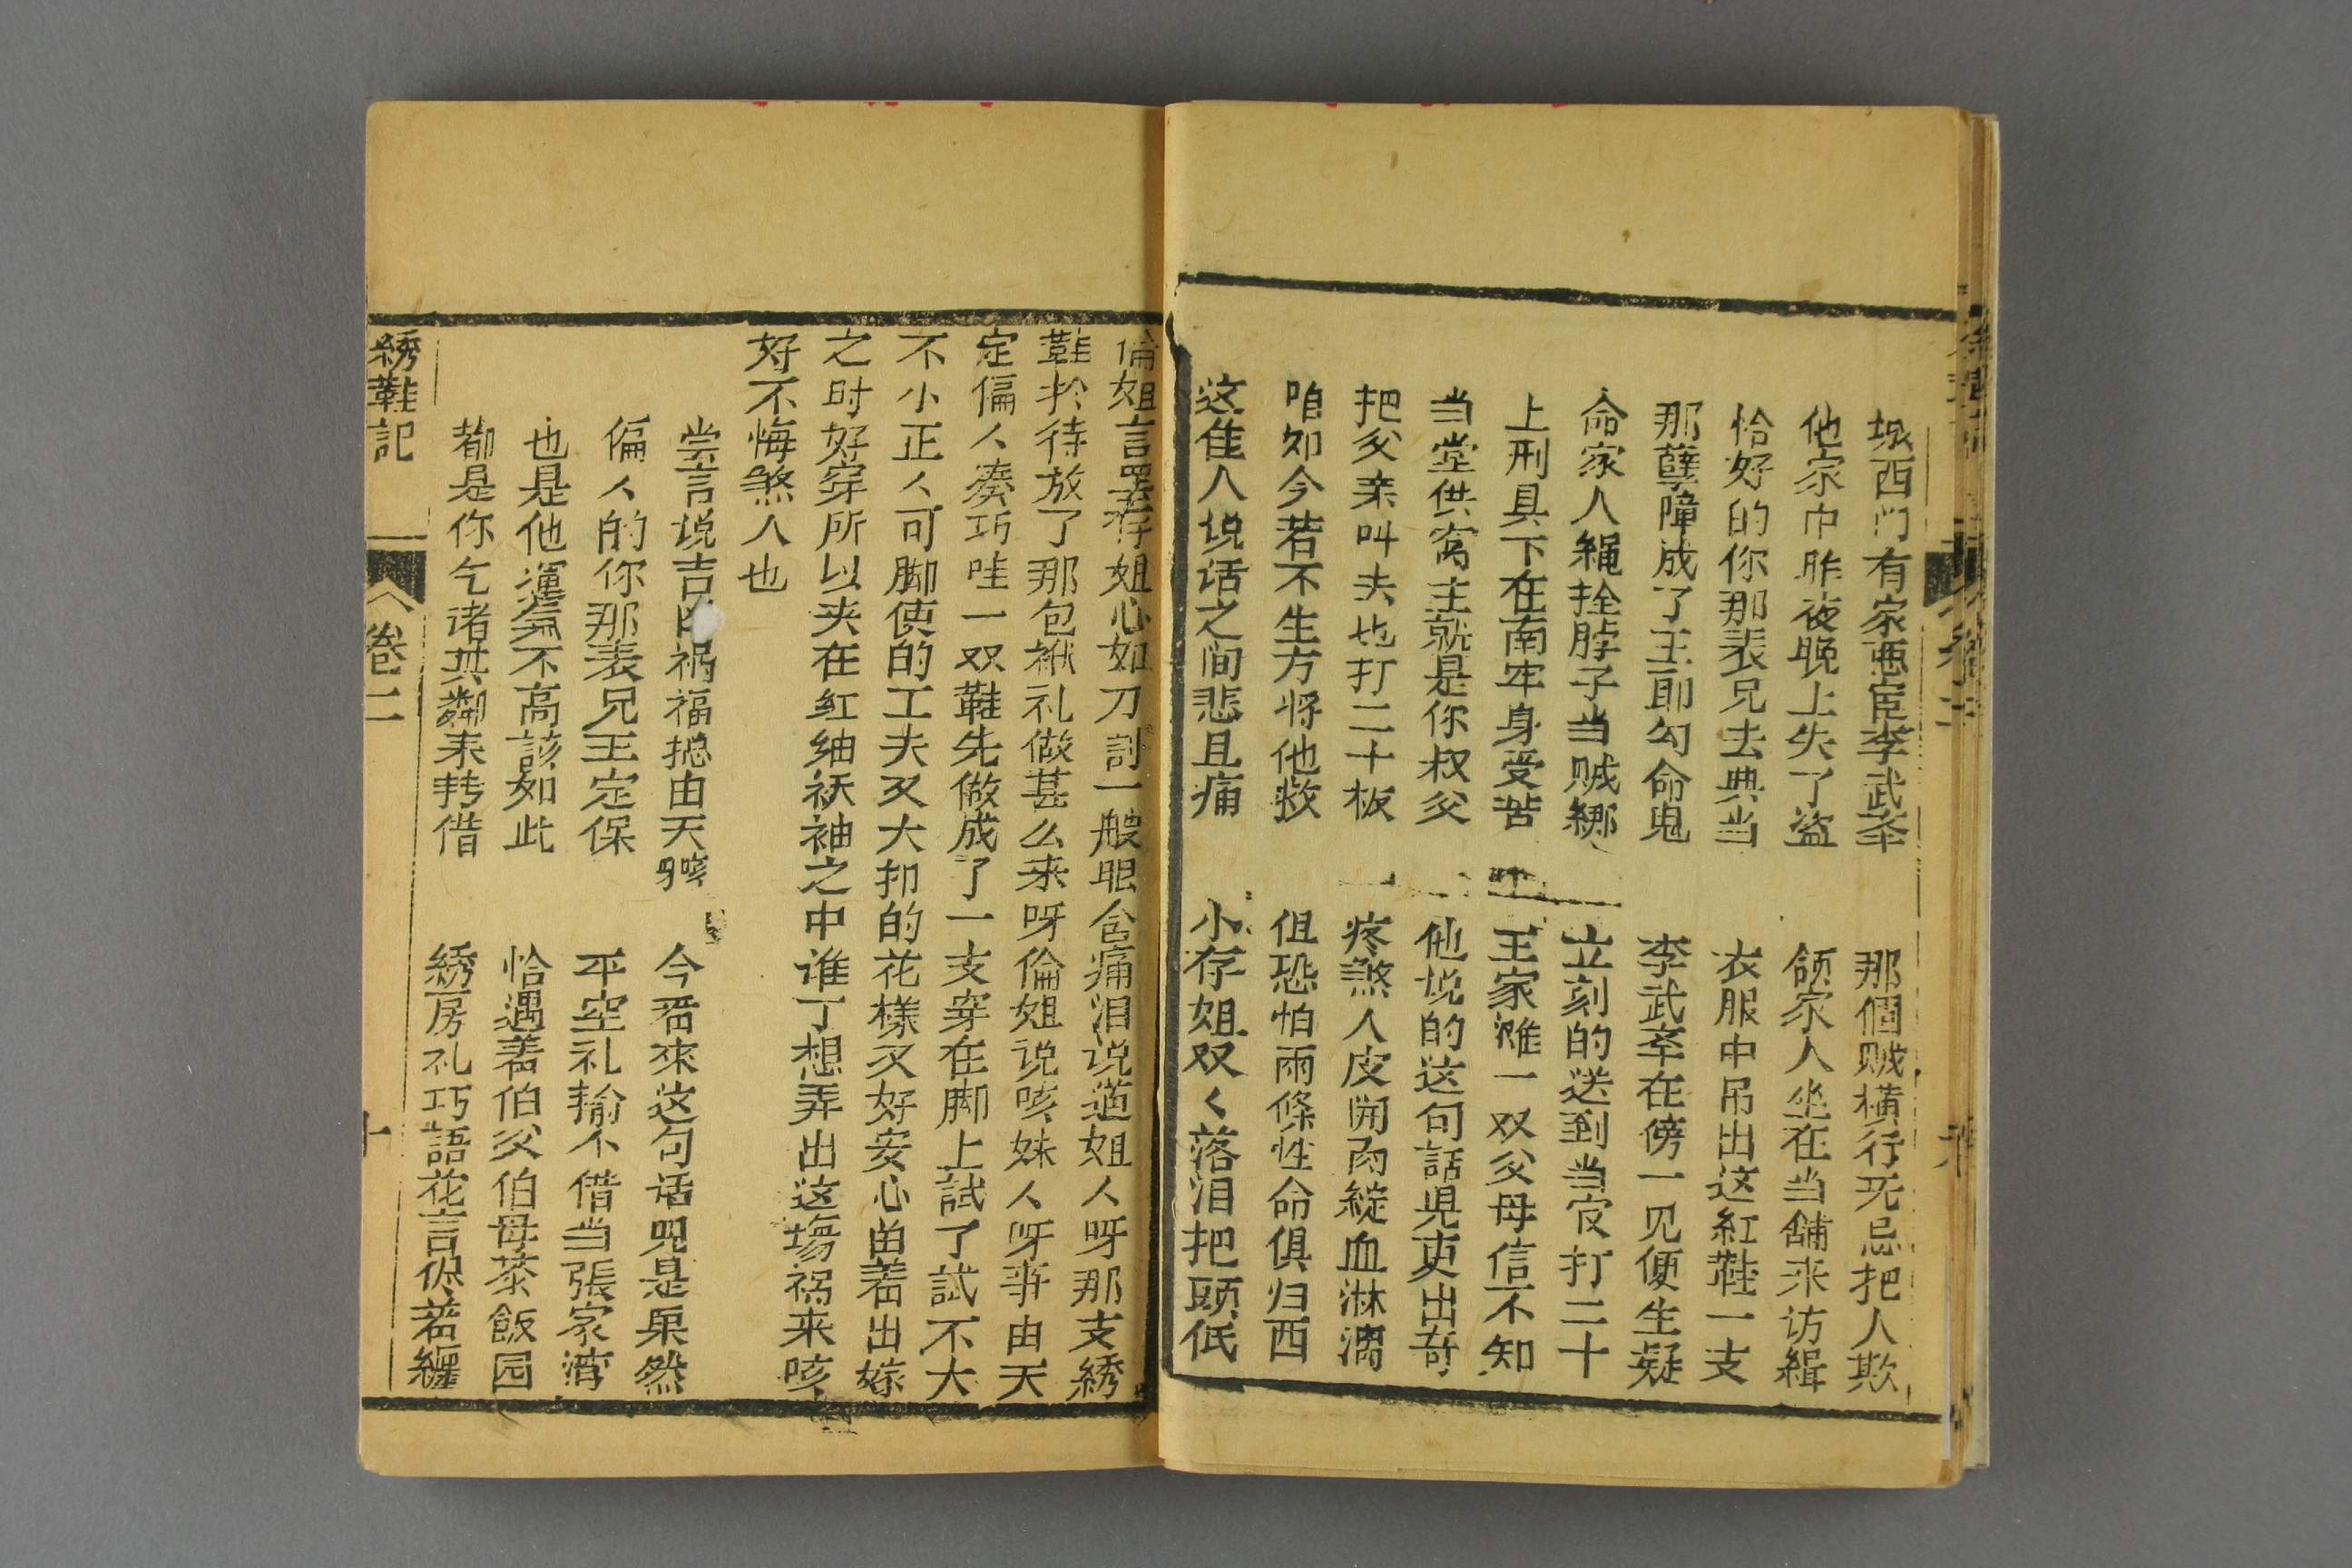 城西门有家恶宦李武举 那個贼横行旡忌把人欺
他家中昨夜晚上失了盗 领家人坐在当舖来访緝
恰好的你那表兄去典当 衣服中吊出这紅鞋一支
那孽障成了王郎勾命鬼 李武举在傍一见便生疑
命家人繩拴脖子当贼綁 立刻的送到当官打二十
上刑具下在南牢身受苦 王家滩一双父母信不知
当堂供窝主就是你叔父 他说的这句話児更出奇
把父亲叫去也打二十板 疼煞人皮開肉綻血淋漓
咱如今若不生方将他救 但恐怕兩條性命俱归西
这佳人说话之间悲且痛 小存姐双く落泪把頭低
倫姐言罢存姐心如刀割一般眼含痛泪说道姐人呀那支綉
鞋扵待放了那包袱礼做甚么来呀倫姐说咳妹人呀事由天
定偏人凑巧哇一双鞋先做成了一支穿在脚上試了試不大
不小正人可脚使的工夫又大扣的花樣又好安心留着出嫁
之时好穿所以夹在红䌷袄袖之中谁了想弄出这塲祸来咳
好不悔煞人也
尝言说吉凶祸福捴由天 今番來这句话児是果然
偏人的你那表兄王定保 平空礼输不借当張家濟
也是他運氣不高該如此 恰遇着伯父伯母茶飯园
都是你乞诸其鄰来转借 綉房礼巧語花言你若纏
綉鞋記 卷二 十